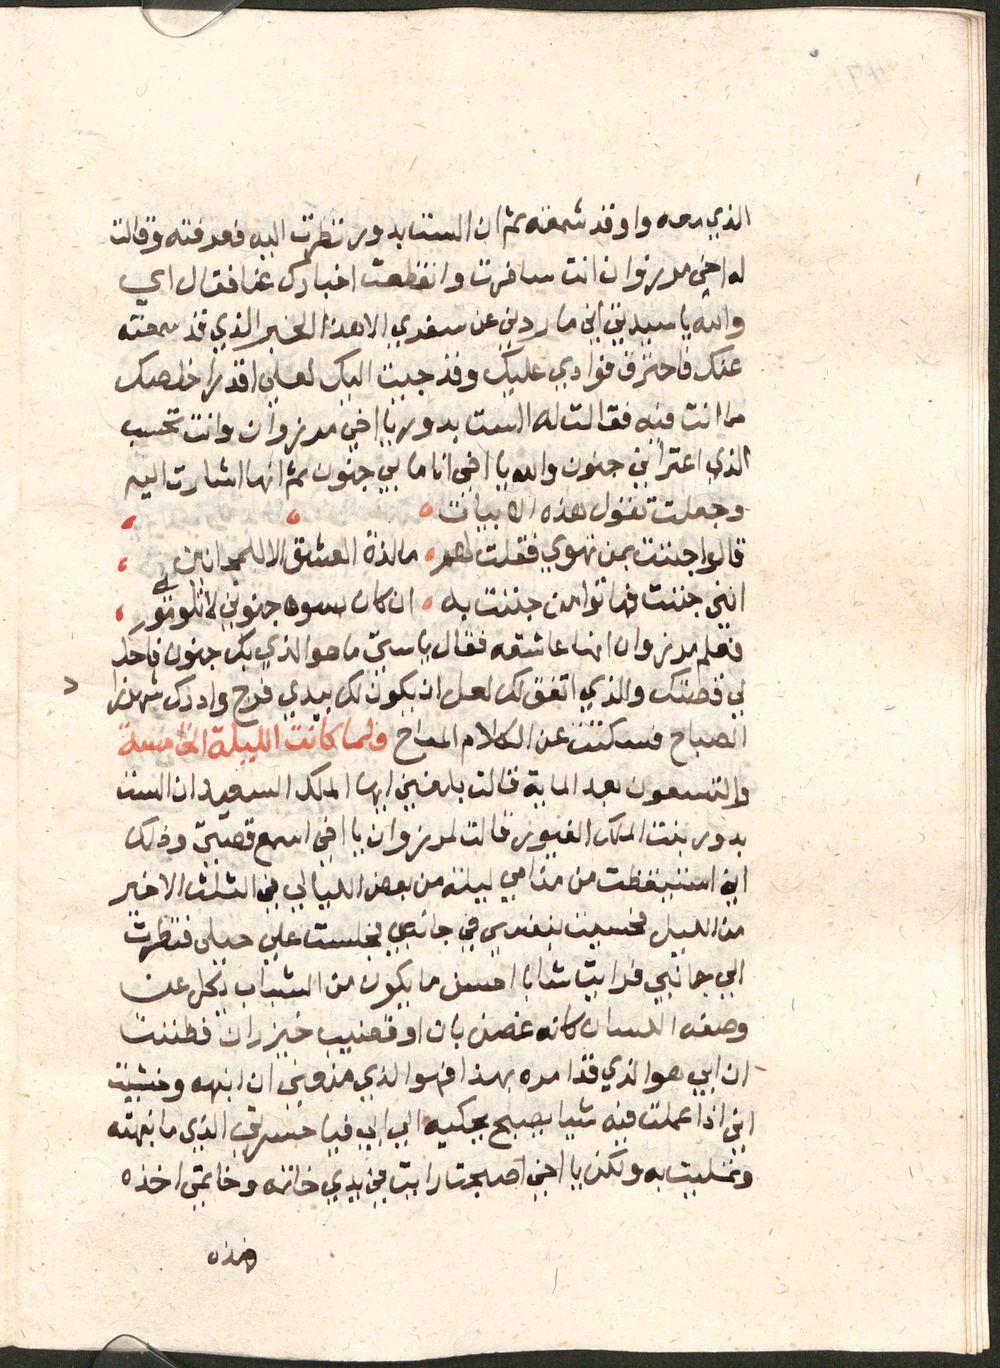 الذي معه واوقد شمعته ثم ان الست بدور نظرت اليه فعرفته وقالت
له اخي مرزوان انت سافرت وانقطعت اخبارك عنا فقال اي
والله يا سيدتي اني ما ردني عن سفري الا هذا الخبر الذي قد سمعته
عنك فاحترق فوادي عليك وقد جيت اليك لعلي اقدر اخلصك
مما انت فيه فقالت له الست بدور يا اخي مرزوان وانت تحسب
الذي اعتراني جنون والله يا اخي انا ما بي جنون ثم انها اشارت اليه
وجعلت تقول هذه الابيات
قالوا جننت بمن تهوي فقلت لهم ما لذة العشق الا للمجانين
انني جننت فهاتوا من جننت به ان كان يسوه جنوني لا تلوموني
فعلم مرزوان انها عاشقه فقال يا ستي ما هو الذي بك جنون فاحكي
لي قصتك والذي اتفق لك لعل ان يكون لك بيدي فرج وادرك شهرزاد
الصباح فسكتت عن الكلام المباح فلما كانت الليلة الخامسة
والتسعون بعد الماية قالت بلغني ايها الملك السعيد ان الست
بدور بنت الملك الغيور قالت لمرزوان يا اخي اسمع قصتي وذلك
اني استيقظت من منامي ليلة من بعض الليالي في الثلث الاخير
من الليل فحسيت بنفس في جانبي فجلست علي حيلي فنظرت
الي جانبي فرايت شابا احسن ما يكون من الشباب يكل عن
وصفه اللسان كانه غصن بان او قضيب خيزران فظننت
ان ابي هو الذي قد امره بهذا فهو الذي منعني ان انبهه وخشيت
اني اذا عملت فيه شيا يصبح يحكيه الي ابي فيا حسرتي الذي ما نبهته
وتمليت به ولكن يا اخي اصبحت رايت في يدي خاتمه وخاتمي اخذه
وهذه